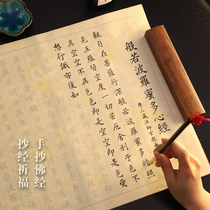 般若波羅蜜多心經
觀自在菩薩行深般若波羅蜜多時照
見五蘊皆空度一切苦厄舍利子色不
異空空不異色色即是空空即是色受
想行識亦復如
手抄佛经
抄经祈福